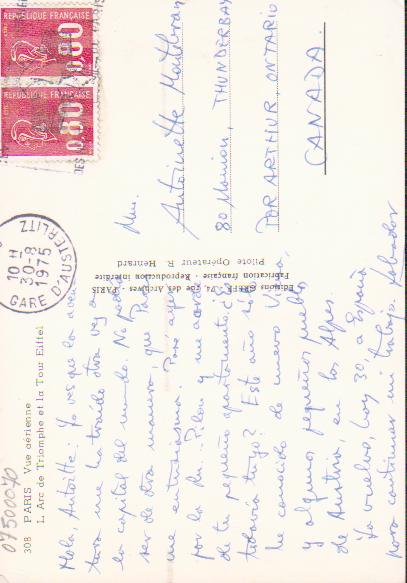 REPUBLIQUE FRANÇAISE
0.80
REPUBLIQUE FRANÇAISE
0.80
10 H
30-8
1975
GARE D'AUSTERLITZ
07500070
308 PARIS Vue aérienne
L'Arc de Triomphe et la Tour Eiffel
Editions GREFF, 74, rue des Archives - PARIS
Fabrication française - Reproduction interdite
Pilote Opérateur R. Henrard
Hola, Antoitte: Ya ves que la aven
tura me ha traído otra vez a
la capital del mundo. No podía
ser de otra manera, que París
me entusiasma. Paso aquí
por la Av. Pilou y me acordé
de tu pequeño apartamento. ¿
todavía tuyo? Este año he
conocido de nuevo Viena,
y algunos pequeños pueblos
de Austria, en los Alpes.
Ya vuelvo, hoy 30, a España
para continuar mi trabajo.
Antoinette
80 THUNDERBAY
POR ARTHUR, ONTARIO
CANADA.